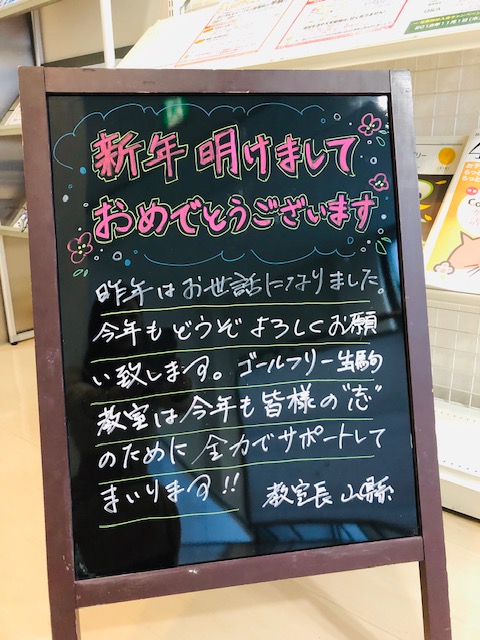 新年 明けまして
おめでとうございます
昨年はお世話になりました。
今年もどうぞよろしくお願
い致します。ゴールフリー生駒
教室は今年も皆様の"志"
のために全力でサポートして
まいります!!
教室長 山縣